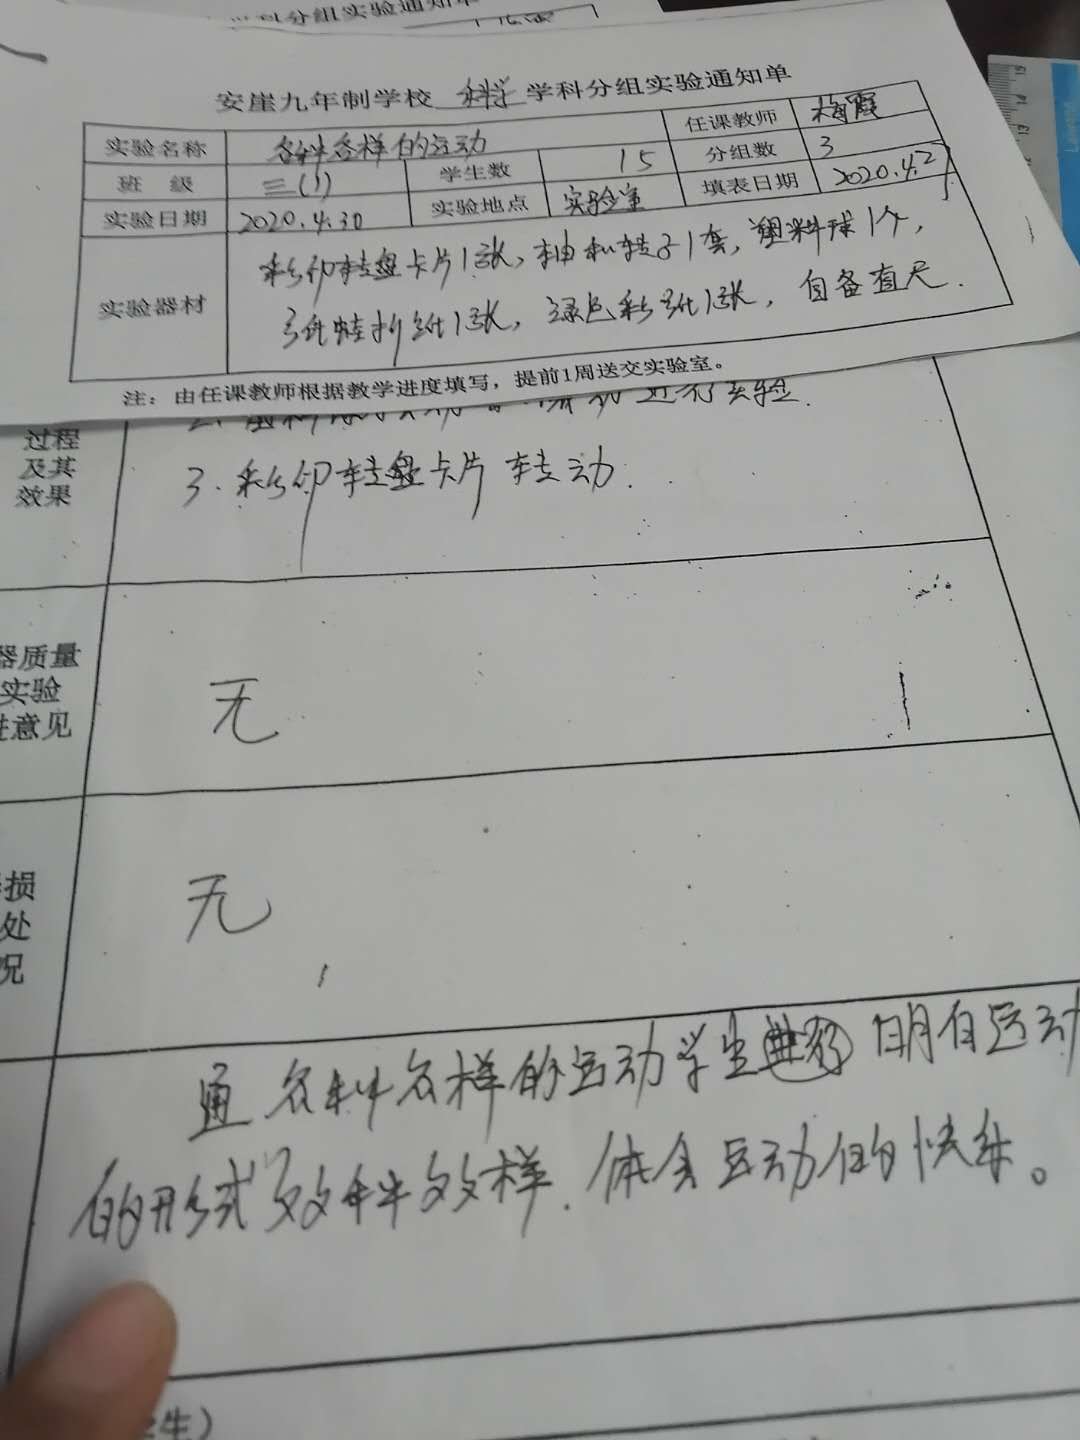 学科分组实验通知单
安崖九年制学校 科学 学科分组实验通知单
实验名称 各种各样的运动 任课教师 梅霞
班 级 三(1) 学生数 15 分组数 3
实验日期 2020.4.30 实验地点 实验室 填表日期 2020.4.27
实验器材 彩印转盘卡片1张,轴和转子1套,塑料球1个,
纸蛙折纸1张,绿色彩纸1张,自备直尺.
注:由任课教师根据教学进度填写,提前1周送交实验室。
过程
及其
效果
3.彩印转盘卡片转动.
器质量
实验
进意见
无
损
处
况
无
通各种各样的运动学生 明白运动
的形式多种多样.体会运动的快乐。
学生)